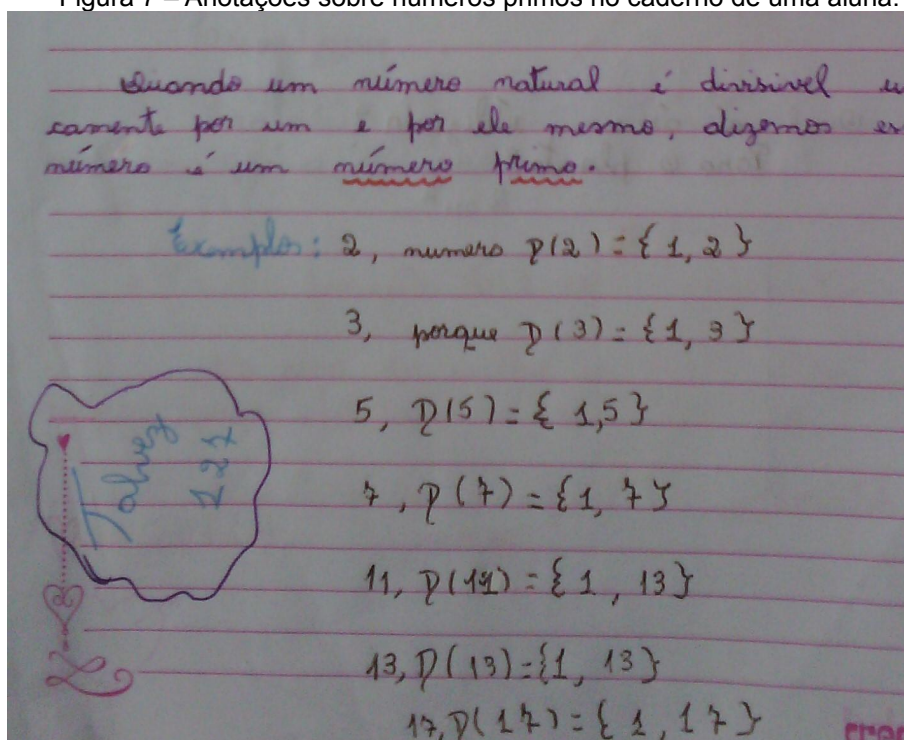 Figura 7 – Anotações sobre números primos no caderno de uma aluna.
Quando um número natural é divisivel u
camente por um e por ele mesmo, dizemos es
número é um número primo.
Exemplos: 2, numero D(2) = { 1, 2 }
3, porque D(3) = { 1, 3 }
5, D(5) = { 1,5 }
7, D(7) = {1, 7}
11, D(11) = { 1, 13}
13, D(13) = {1, 13}
17, D(17) = { 1, 17 }
Talvez
127